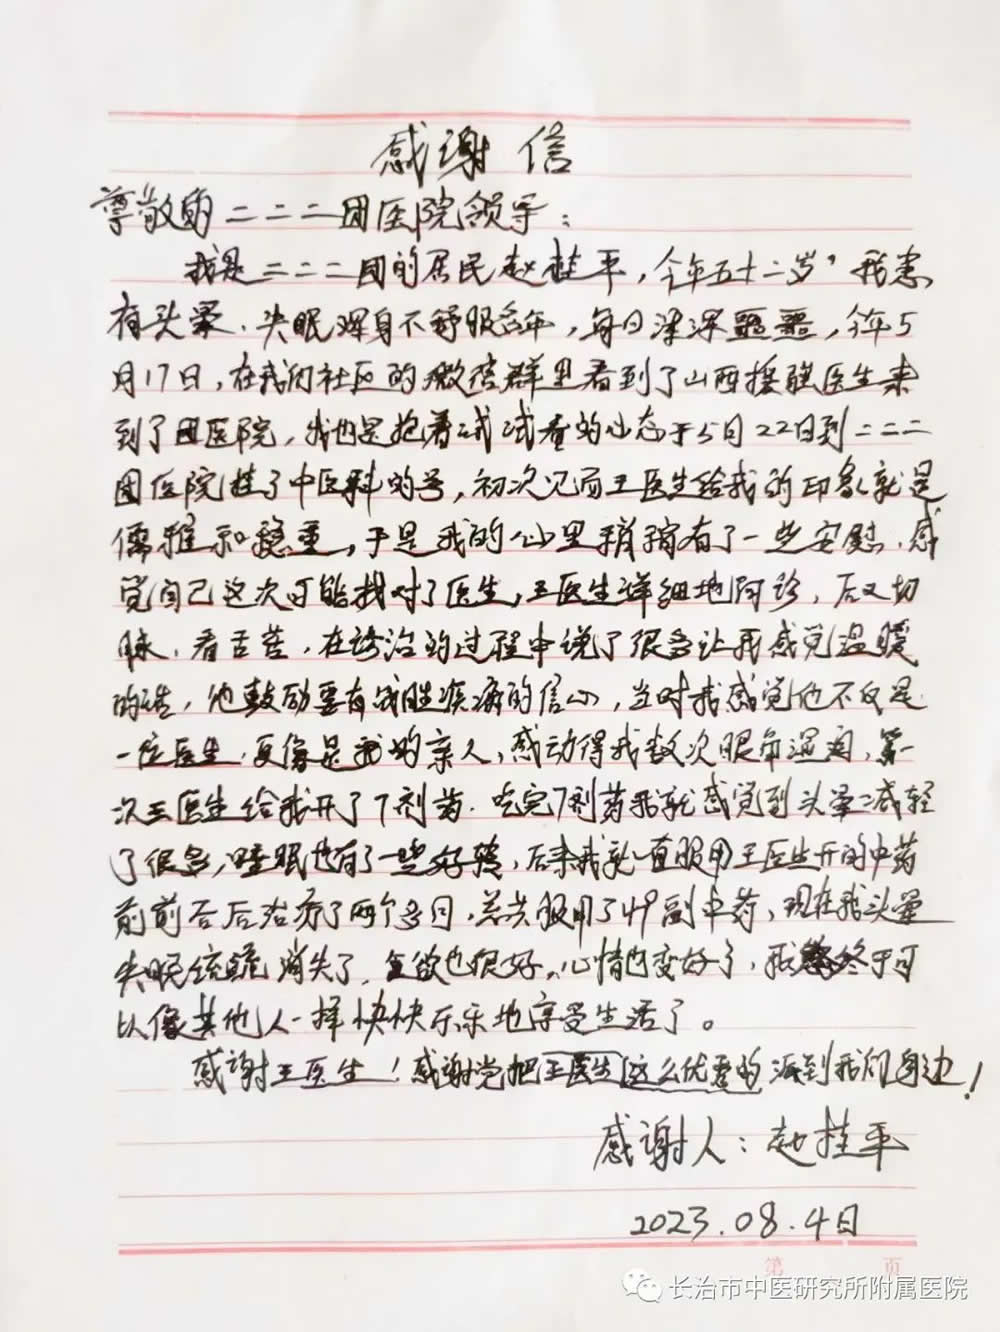 感谢信
尊敬的二二二团医院领导：
我是二二二团的居民赵桂平，今年五十二岁，我患
有头晕、失眠浑身不舒服多年，每日浑浑噩噩，今年5
月17日，在我们社区的微信群里看到了山西援疆医生来
到了团医院，我也是抱着试试看的心态于5月22日到二二二
团医院挂了中医科的号，初次见面王医生给我的印象就是
儒雅和稳重，于是我的心里稍稍有了一些安慰，感
觉自己这次可能找对了医生，王医生详细地问诊，后又切
脉、看舌苔，在诊治的过程中说了很多让我感觉温暖
的话，他鼓励要有战胜疾病的信心，当时我感觉他不仅是
一位医生，更像是我的亲人，感动得我数次眼角湿润，第一
次王医生给我开了7剂药，吃完7剂药我就感觉到头晕减轻
了很多，睡眠也有了一些好转，后来我就一直服用王医生开的中药
前前后后治疗了两个多月，总共服用了49副中药，现在我头晕
失眠统统消失了，食欲也很好，心情也变好了，我终于可
以像其他人一样快快乐乐地享受生活了。
感谢王医生！感谢党把王医生这么优秀的派到我们身边！
感谢人：赵桂平
2023.08.4日
第 页
长治市中医研究所附属医院